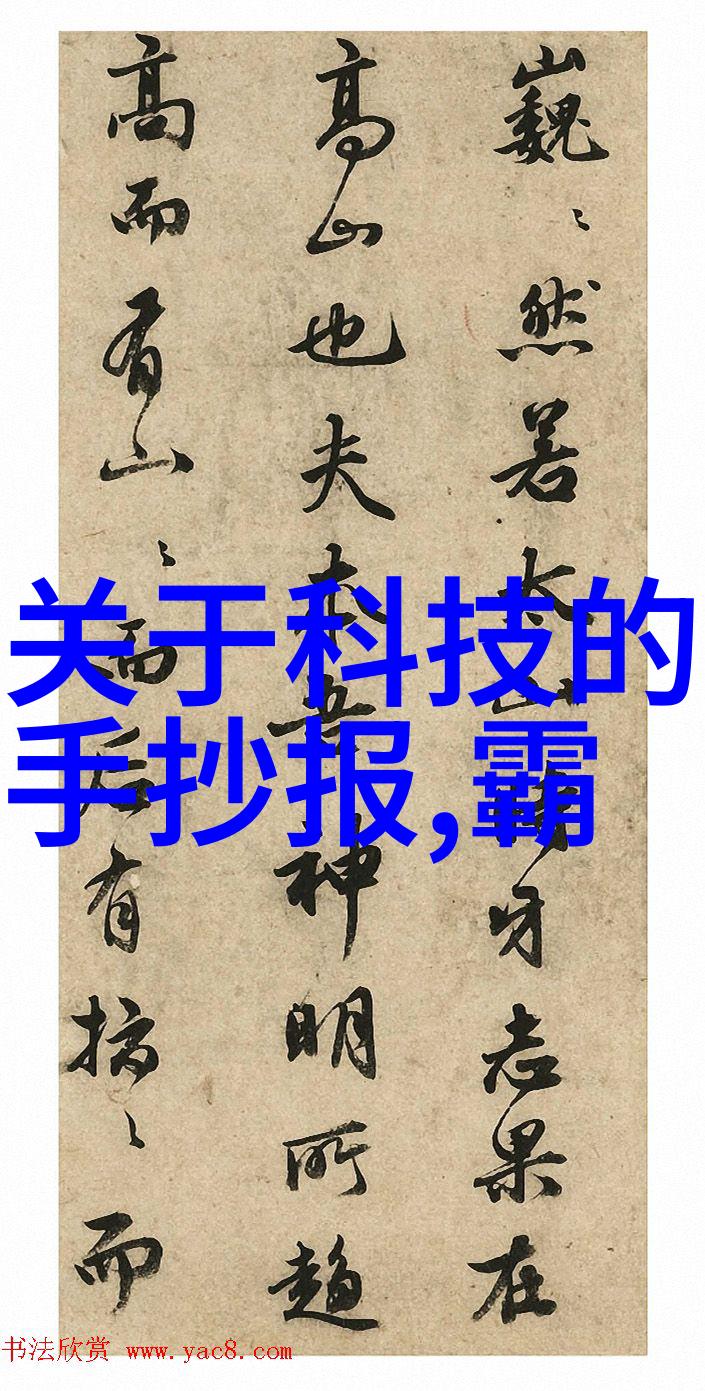 巍〻然若太山牙志果在
高山也夫本吾神明所趨
高而有山〻而后有〻而
关于科技的
手抄报,霸
书法欣赏 www.yac8.com